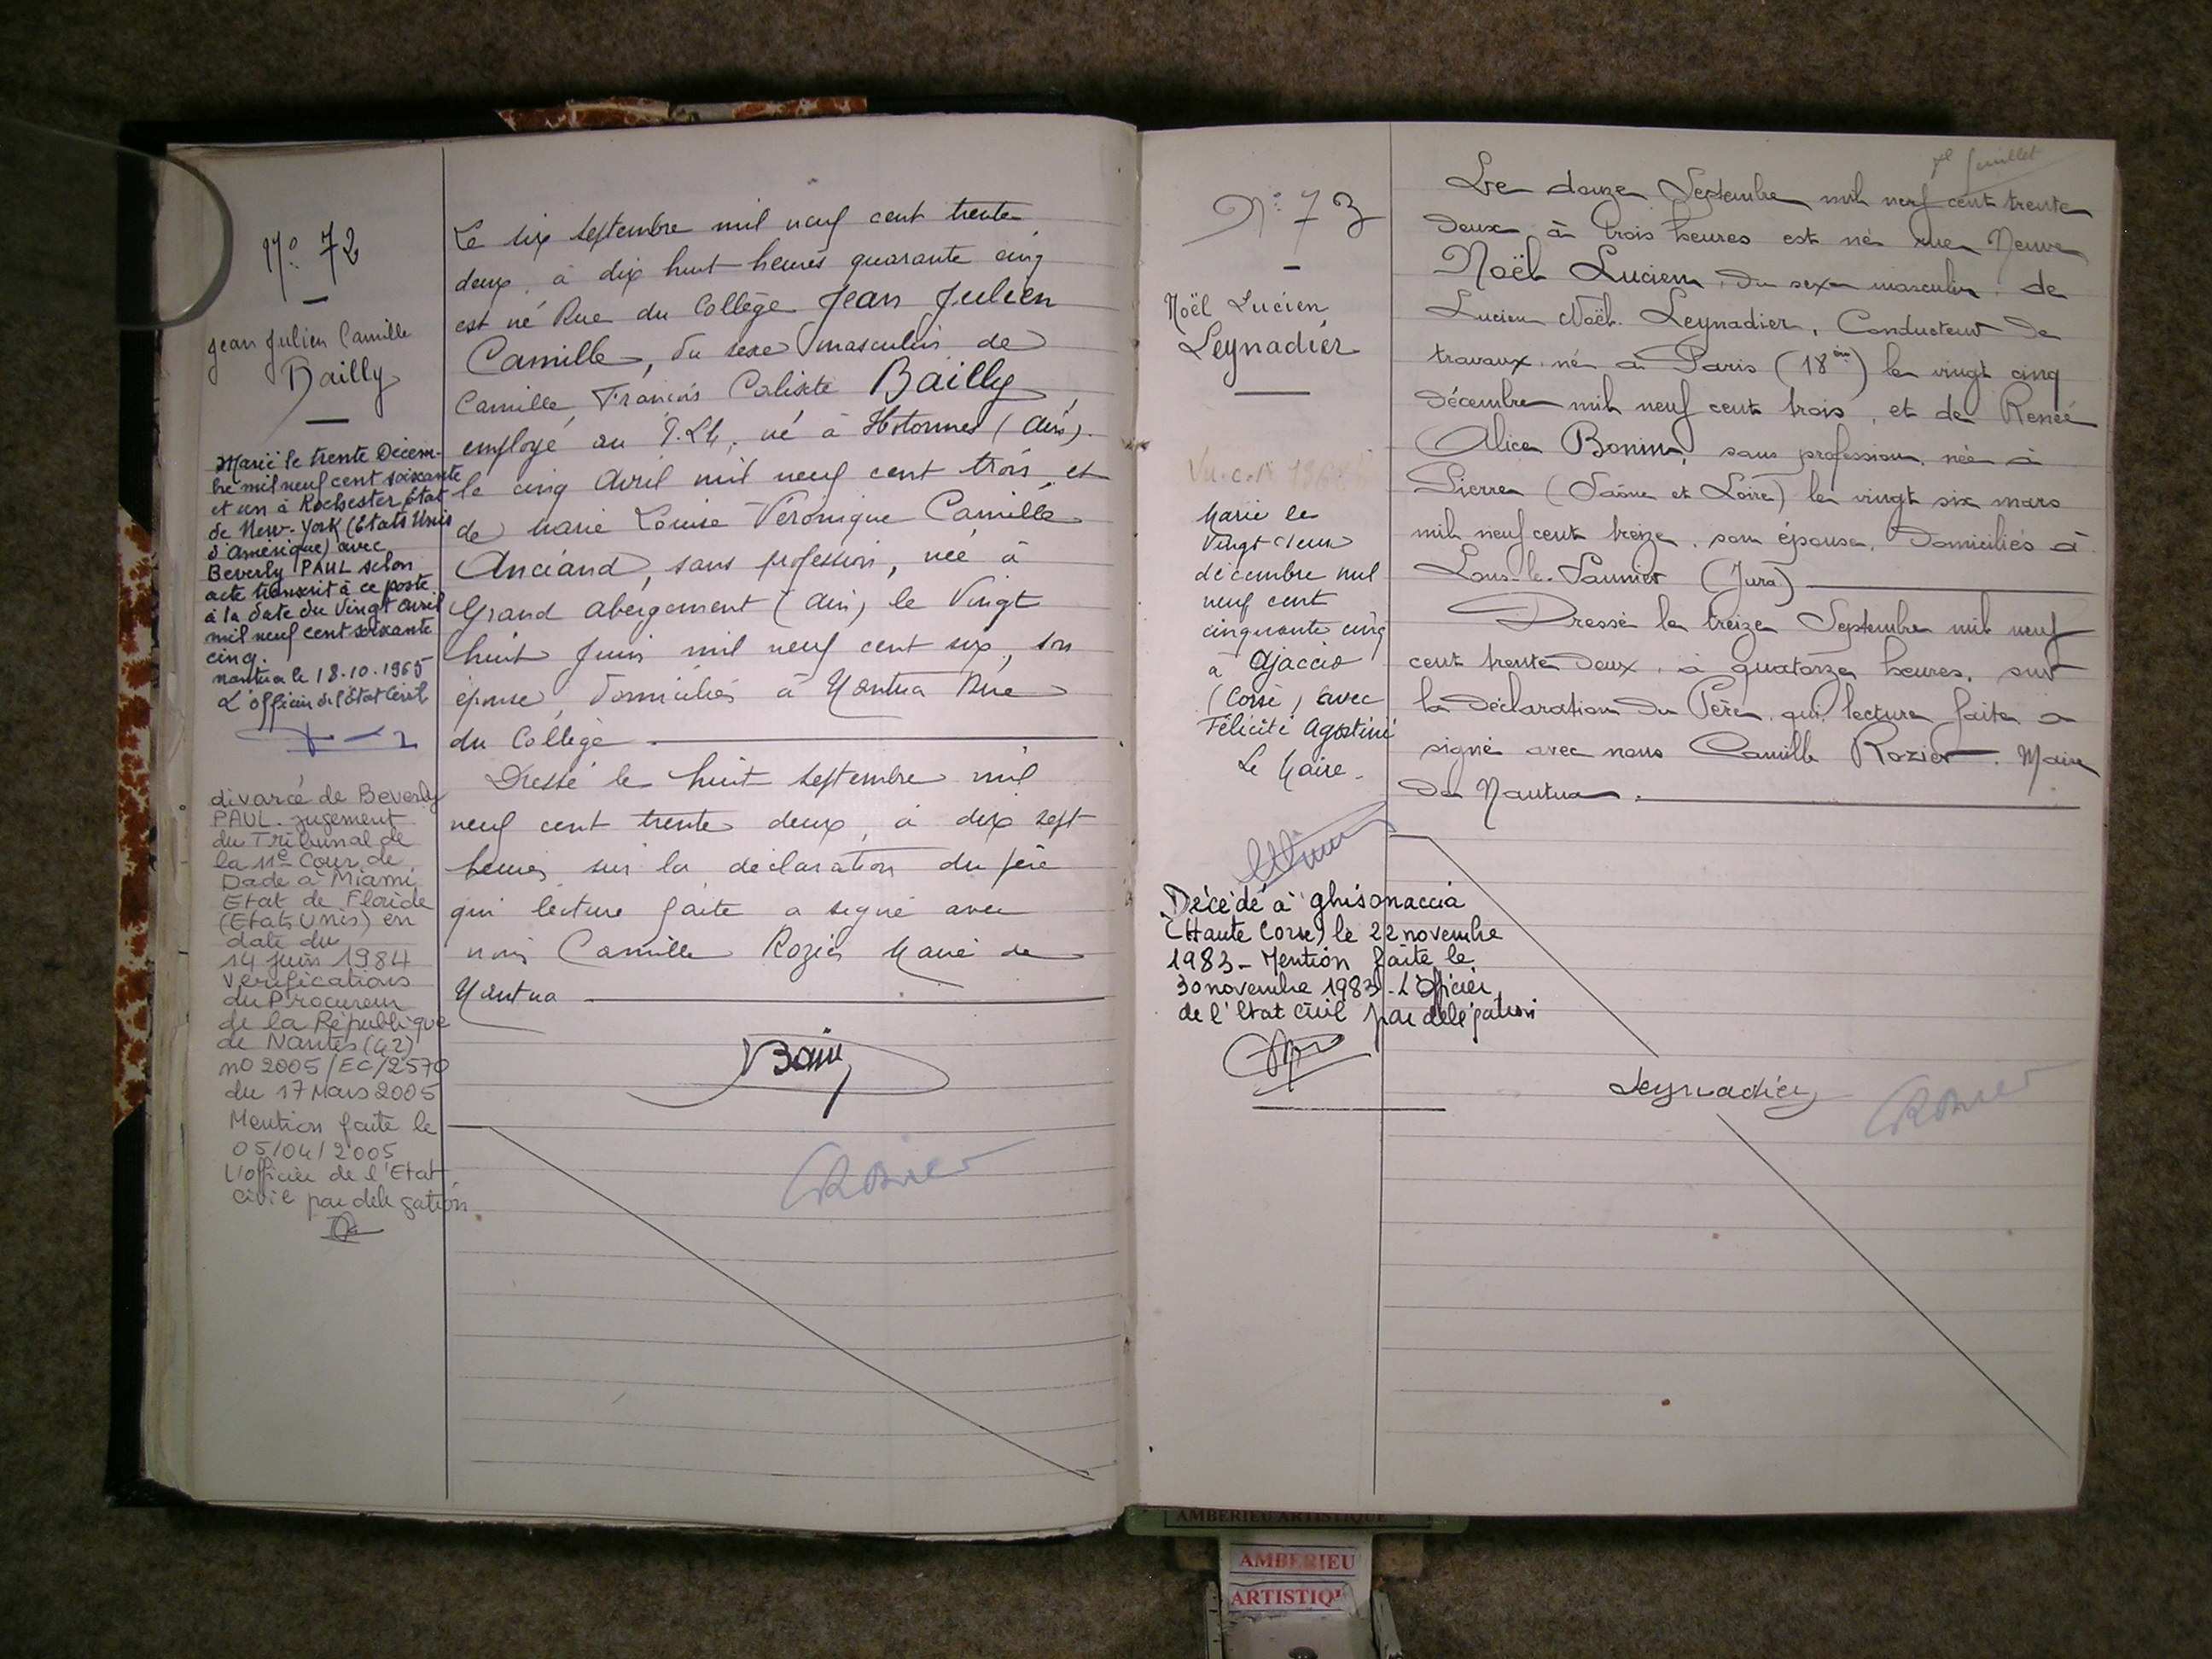 N° 72
Jean Julien Camille
Bailly
Marié le trente Décem-
bre mil neuf cent soixante
et un à Rochester, État
de New-York (États Unis
d'Amérique) avec
Beverly PAUL selon
acte transcrit à ce poste
à la date du Vingt avril
mil neuf cent soixante
cinq.
Nantua le 18.10.1965
L'officier de l'État Civil
divorcé de Beverly
PAUL. jugement
du Tribunal de
la 11e Cour de
Dade à Miami
Etat de Floride
(Etats Unis) en
date du
14 juin 1984
Vérifications
du Procureur
de la République
de Nantes (42)
no 2005/EC/2570
du 17 Mars 2005
Mention faite le
05/04/2005
L'officier de l'Etat
civil par délégation
Le six septembre mil neuf cent trente
deux, à dix huit heures quarante cinq
est né Rue du Collège Jean Julien
Camille, du sexe masculin de
Camille François Calixte Bailly,
employé au P.L.M, né à Hotonnes (Ain).
le cinq Avril mil neuf cent trois, et
de Marie Louise Véronique Camille
Anciand, sans profession, née à
Grand Abergement (Ain) le Vingt
huit Juin mil neuf cent six, son
épouse, domiciliés à Nantua Rue
du Collège
Dressé le huit septembre mil
neuf cent trente deux, à dix sept
heures, sur la déclaration du père
qui lecture faite a signé avec
nous Camille Rozier Maire de
Nantua
Bailly
CRozier
N° 73
Noël Lucien
Leynadier
Marié le
Vingt deux
décembre mil
neuf cent
cinquante cinq
à Ajaccio
(Corse) avec
Félicité Agostini
Le Maire.
Décédé à ghisonaccia
(Haute Corse) le 22 novembre
1983 - Mention faite le
30 novembre 1983 - L'Officier
de l'Etat Civil par délégation
feuillet
Le douze Septembre mil neuf cent trente
deux à trois heures est né rue Neuve
Noël Lucien, du sexe masculin, de
Lucien Noël Leynadier, Conducteur de
travaux, né à Paris (18ème) le vingt cinq
décembre mil neuf cent trois, et de Renée
Alice Bonin, sans profession, née à
Pierre (Saône et Loire) le vingt six mars
mil neuf cent treize, son épouse, domiciliés à
Lons-le-Saunier (Jura)
Dressé le treize Septembre mil neuf
cent trente deux, à quatorze heures, sur
la déclaration du Père, qui, lecture faite a
signé avec nous Camille Rozier, Maire
de Nantua.
Leynadier
CRozier
AMBERIEU ARTISTIQUE
AMBERIEU
ARTISTIQ